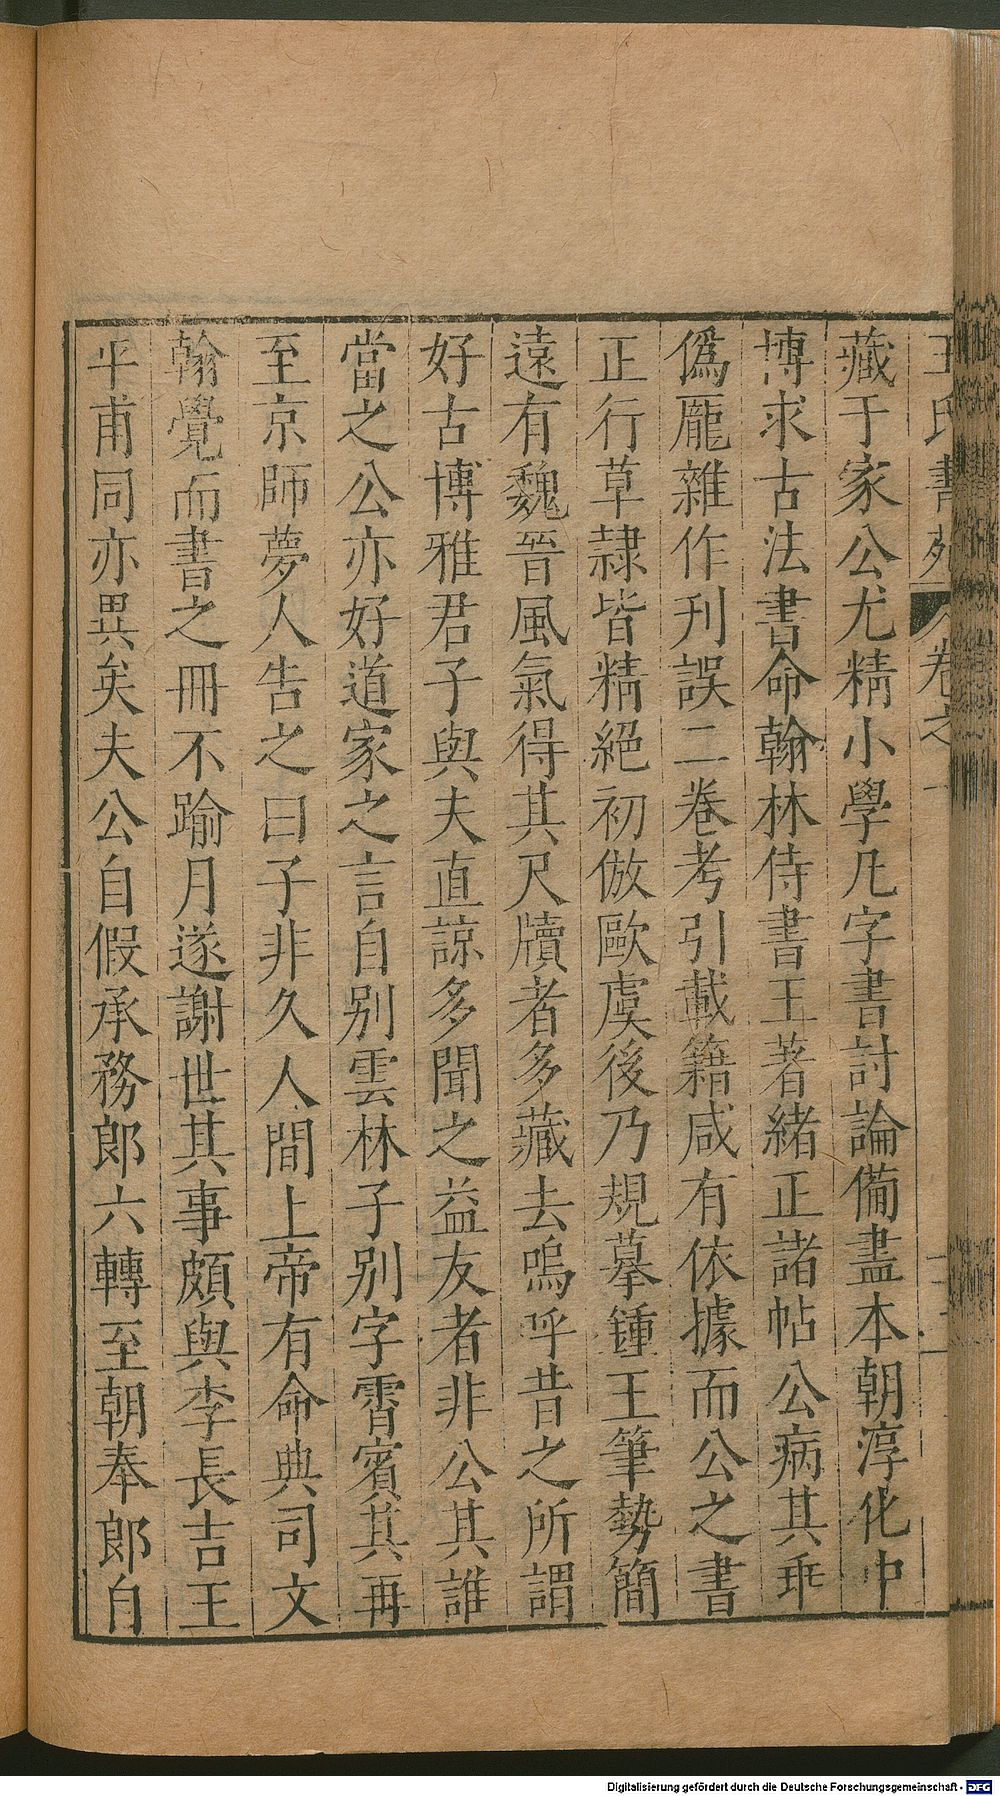 王氏書苑 卷之一
藏于家公尤精小學凡字書討論備盡本朝淳化中
博求古法書命翰林侍書王著緒正諸帖公病其乖
僞厖雜作刋誤二卷考引載籍咸有依據而公之書
正行草隷皆精絕初倣歐虞後乃規摹鍾王筆勢簡
遠有魏晉風氣得其尺牘者多藏去嗚呼昔之所謂
好古博雅君子與夫直諒多聞之益友者非公其誰
當之公亦好道家之言自别雲林子别字霄賔其再
至京師夢人告之曰子非久人間上帝有命典司文
翰覺而書之冊不踰月遂謝世其事頗與李長吉王
平甫同亦異矣夫公自假承務郎六轉至朝奉郎自
Digitalisierung gefördert durch die Deutsche Forschungsgemeinschaft - DFG